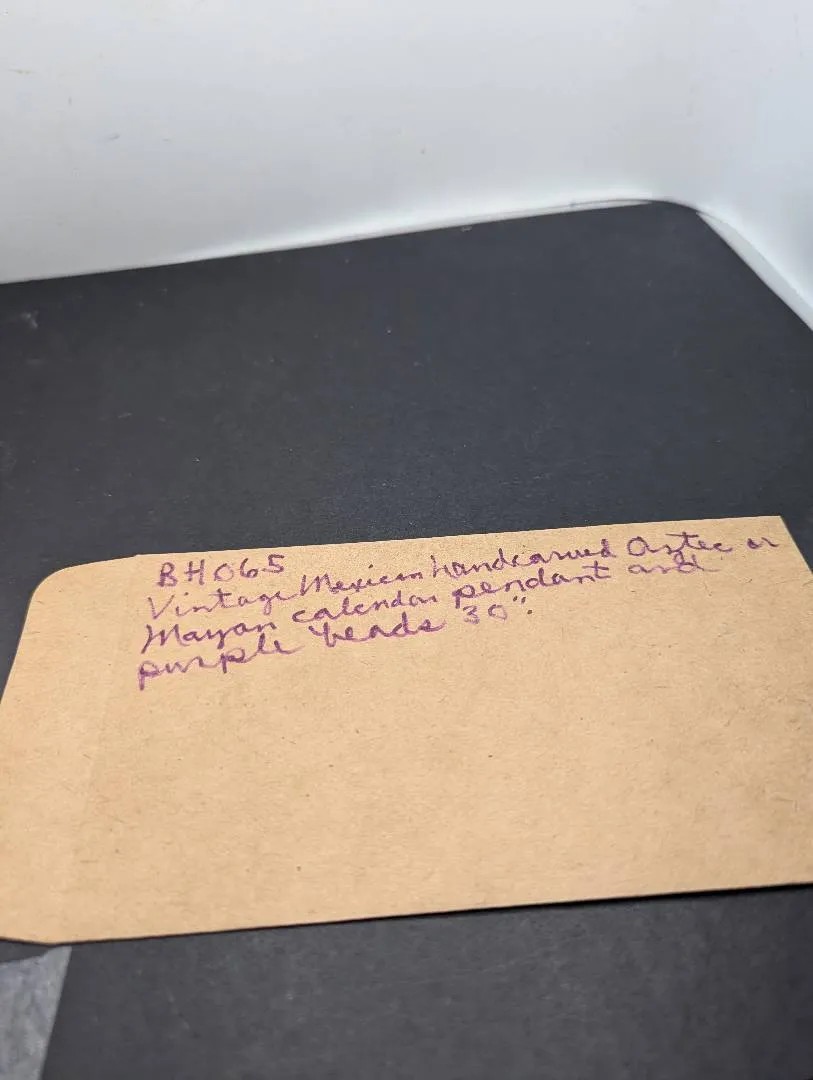 BH065
Vintage Mexican handcarved Aztec or
Mayan calendar pendant and
purple beads 30".